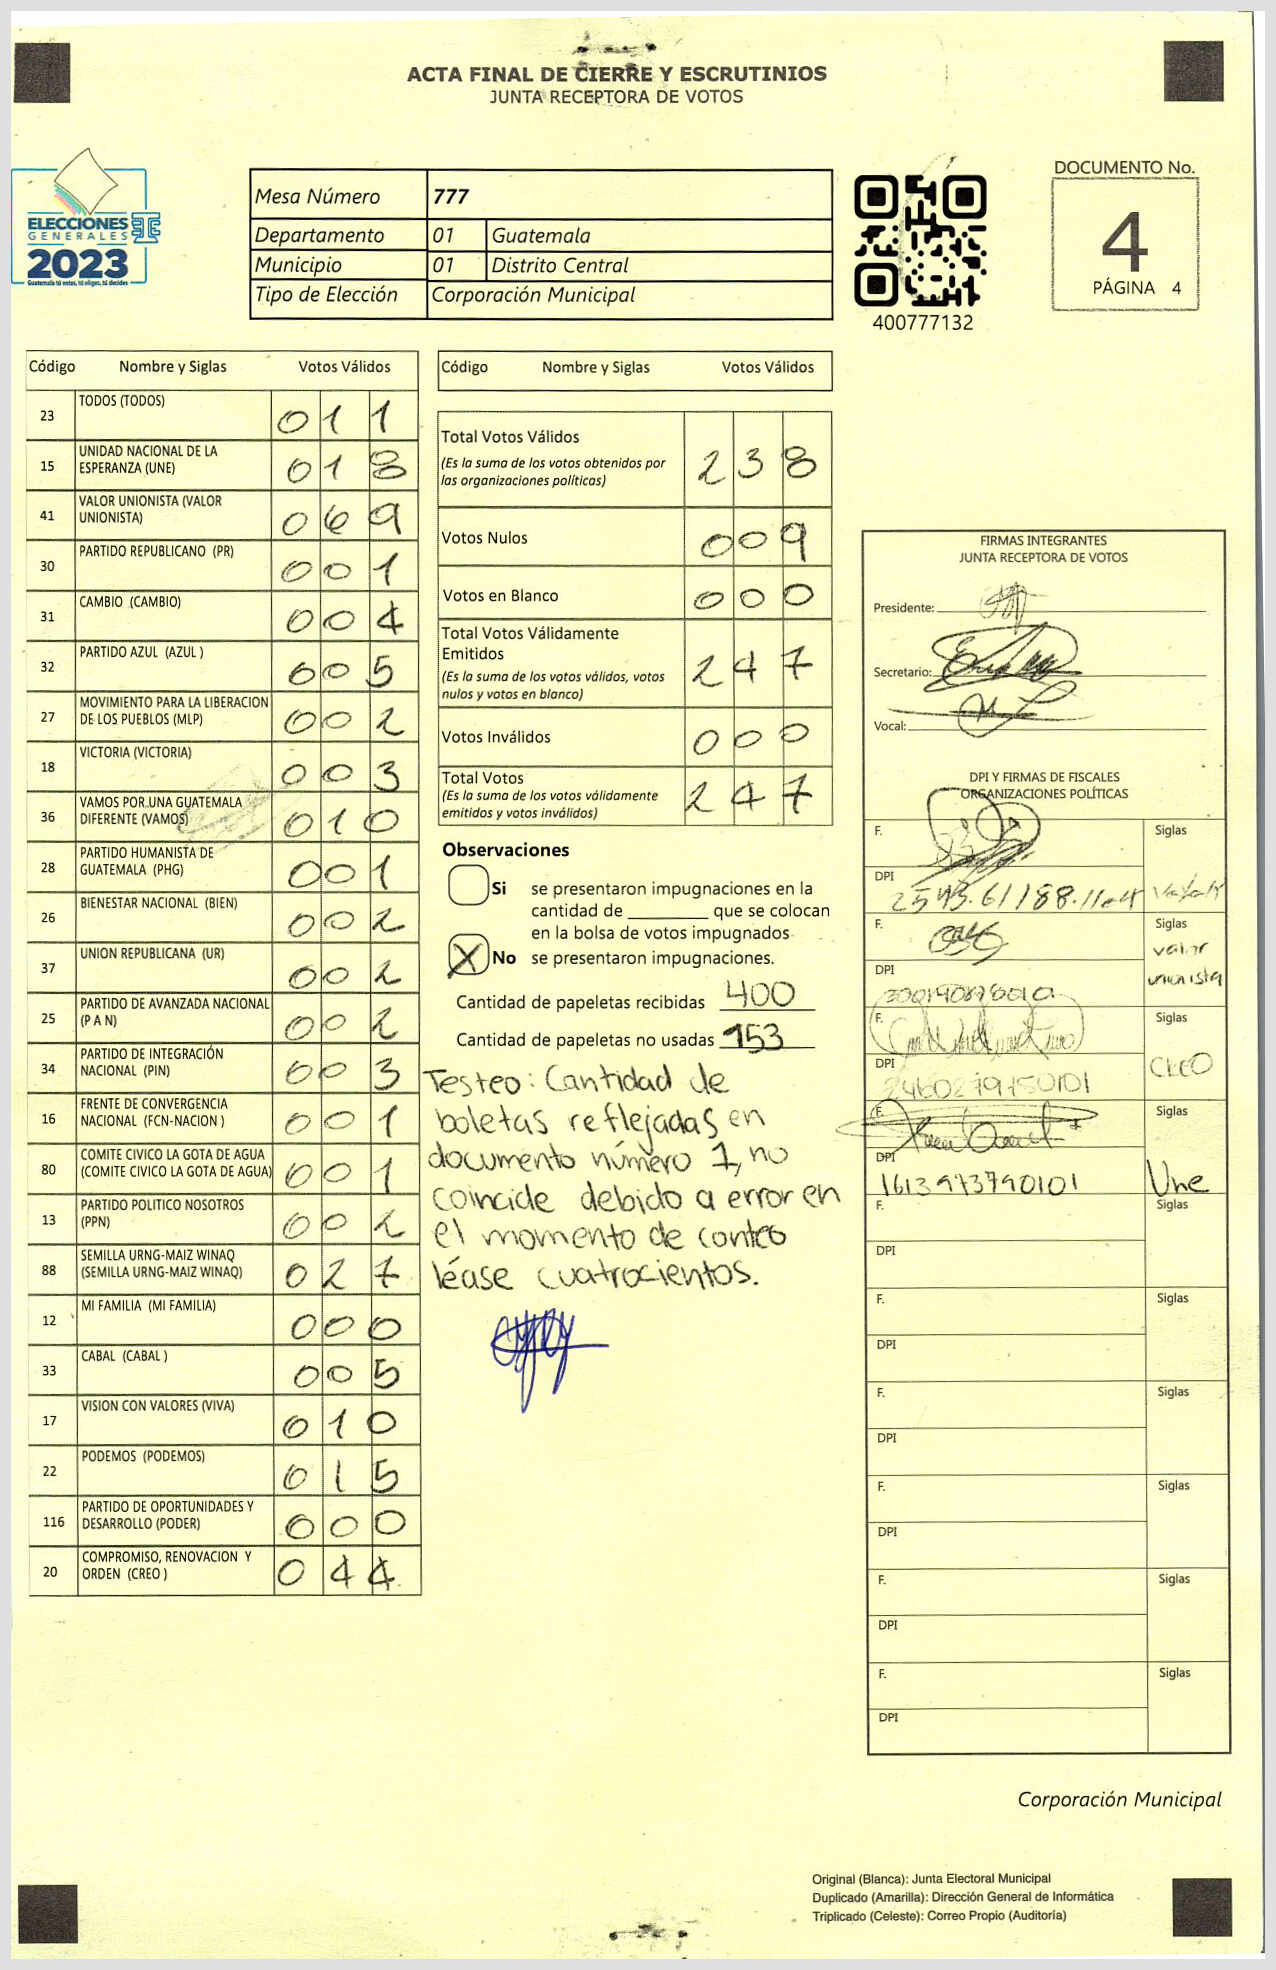 ACTA FINAL DE CIERRE Y ESCRUTINIOS
JUNTA RECEPTORA DE VOTOS
ELECCIONES
GENERALES
2023
Guatemala tú votas, tú eliges, tú decides
Mesa Número 777
Departamento 01 Guatemala
Municipio 01 Distrito Central
Tipo de Elección Corporación Municipal
400777132
DOCUMENTO No.
4
PÁGINA 4
Código Nombre y Siglas Votos Válidos
23 TODOS (TODOS) 0 1 1
15 UNIDAD NACIONAL DE LA
ESPERANZA (UNE) 0 1 8
41 VALOR UNIONISTA (VALOR
UNIONISTA) 0 6 9
30 PARTIDO REPUBLICANO (PR) 0 0 1
31 CAMBIO (CAMBIO) 0 0 4
32 PARTIDO AZUL (AZUL ) 0 0 5
27 MOVIMIENTO PARA LA LIBERACION
DE LOS PUEBLOS (MLP) 0 0 2
18 VICTORIA (VICTORIA) 0 0 3
36 VAMOS POR UNA GUATEMALA
DIFERENTE (VAMOS) 0 1 0
28 PARTIDO HUMANISTA DE
GUATEMALA (PHG) 0 0 1
26 BIENESTAR NACIONAL (BIEN) 0 0 2
37 UNION REPUBLICANA (UR) 0 0 2
25 PARTIDO DE AVANZADA NACIONAL
(P A N) 0 0 2
34 PARTIDO DE INTEGRACIÓN
NACIONAL (PIN) 0 0 3
16 FRENTE DE CONVERGENCIA
NACIONAL (FCN-NACION ) 0 0 1
80 COMITE CIVICO LA GOTA DE AGUA
(COMITE CIVICO LA GOTA DE AGUA) 0 0 1
13 PARTIDO POLITICO NOSOTROS
(PPN) 0 0 2
88 SEMILLA URNG-MAIZ WINAQ
(SEMILLA URNG-MAIZ WINAQ) 0 2 7
12 MI FAMILIA (MI FAMILIA) 0 0 0
33 CABAL (CABAL ) 0 0 5
17 VISION CON VALORES (VIVA) 0 1 0
22 PODEMOS (PODEMOS) 0 1 5
116 PARTIDO DE OPORTUNIDADES Y
DESARROLLO (PODER) 0 0 0
20 COMPROMISO, RENOVACION Y
ORDEN (CREO ) 0 4 4
Código Nombre y Siglas Votos Válidos
Total Votos Válidos 2 3 8
(Es la suma de los votos obtenidos por
las organizaciones políticas)
Votos Nulos 0 0 9
Votos en Blanco 0 0 0
Total Votos Válidamente
Emitidos 2 4 7
(Es la suma de los votos válidos, votos
nulos y votos en blanco)
Votos Inválidos 0 0 0
Total Votos 2 4 7
(Es la suma de los votos válidamente
emitidos y votos inválidos)
Observaciones
Si se presentaron impugnaciones en la
cantidad de ________ que se colocan
en la bolsa de votos impugnados
X No se presentaron impugnaciones.
Cantidad de papeletas recibidas 400
Cantidad de papeletas no usadas 153
Testeo: Cantidad de
boletas reflejadas en
documento número 1, no
coincide debido a error en
el momento de conteo
léase cuatrocientos.
FIRMAS INTEGRANTES
JUNTA RECEPTORA DE VOTOS
Presidente:
Secretario:
Vocal:
DPI Y FIRMAS DE FISCALES
ORGANIZACIONES POLÍTICAS
F. Siglas
DPI
F. Siglas
valor
unionista
DPI
F. Siglas
CREO
DPI 2460279750101
F. Siglas
DPI
1613973790101 Une
F. Siglas
DPI
F. Siglas
DPI
F. Siglas
DPI
F. Siglas
DPI
F. Siglas
DPI
F. Siglas
DPI
Corporación Municipal
Original (Blanca): Junta Electoral Municipal
Duplicado (Amarilla): Dirección General de Informática
Triplicado (Celeste): Correo Propio (Auditoría)